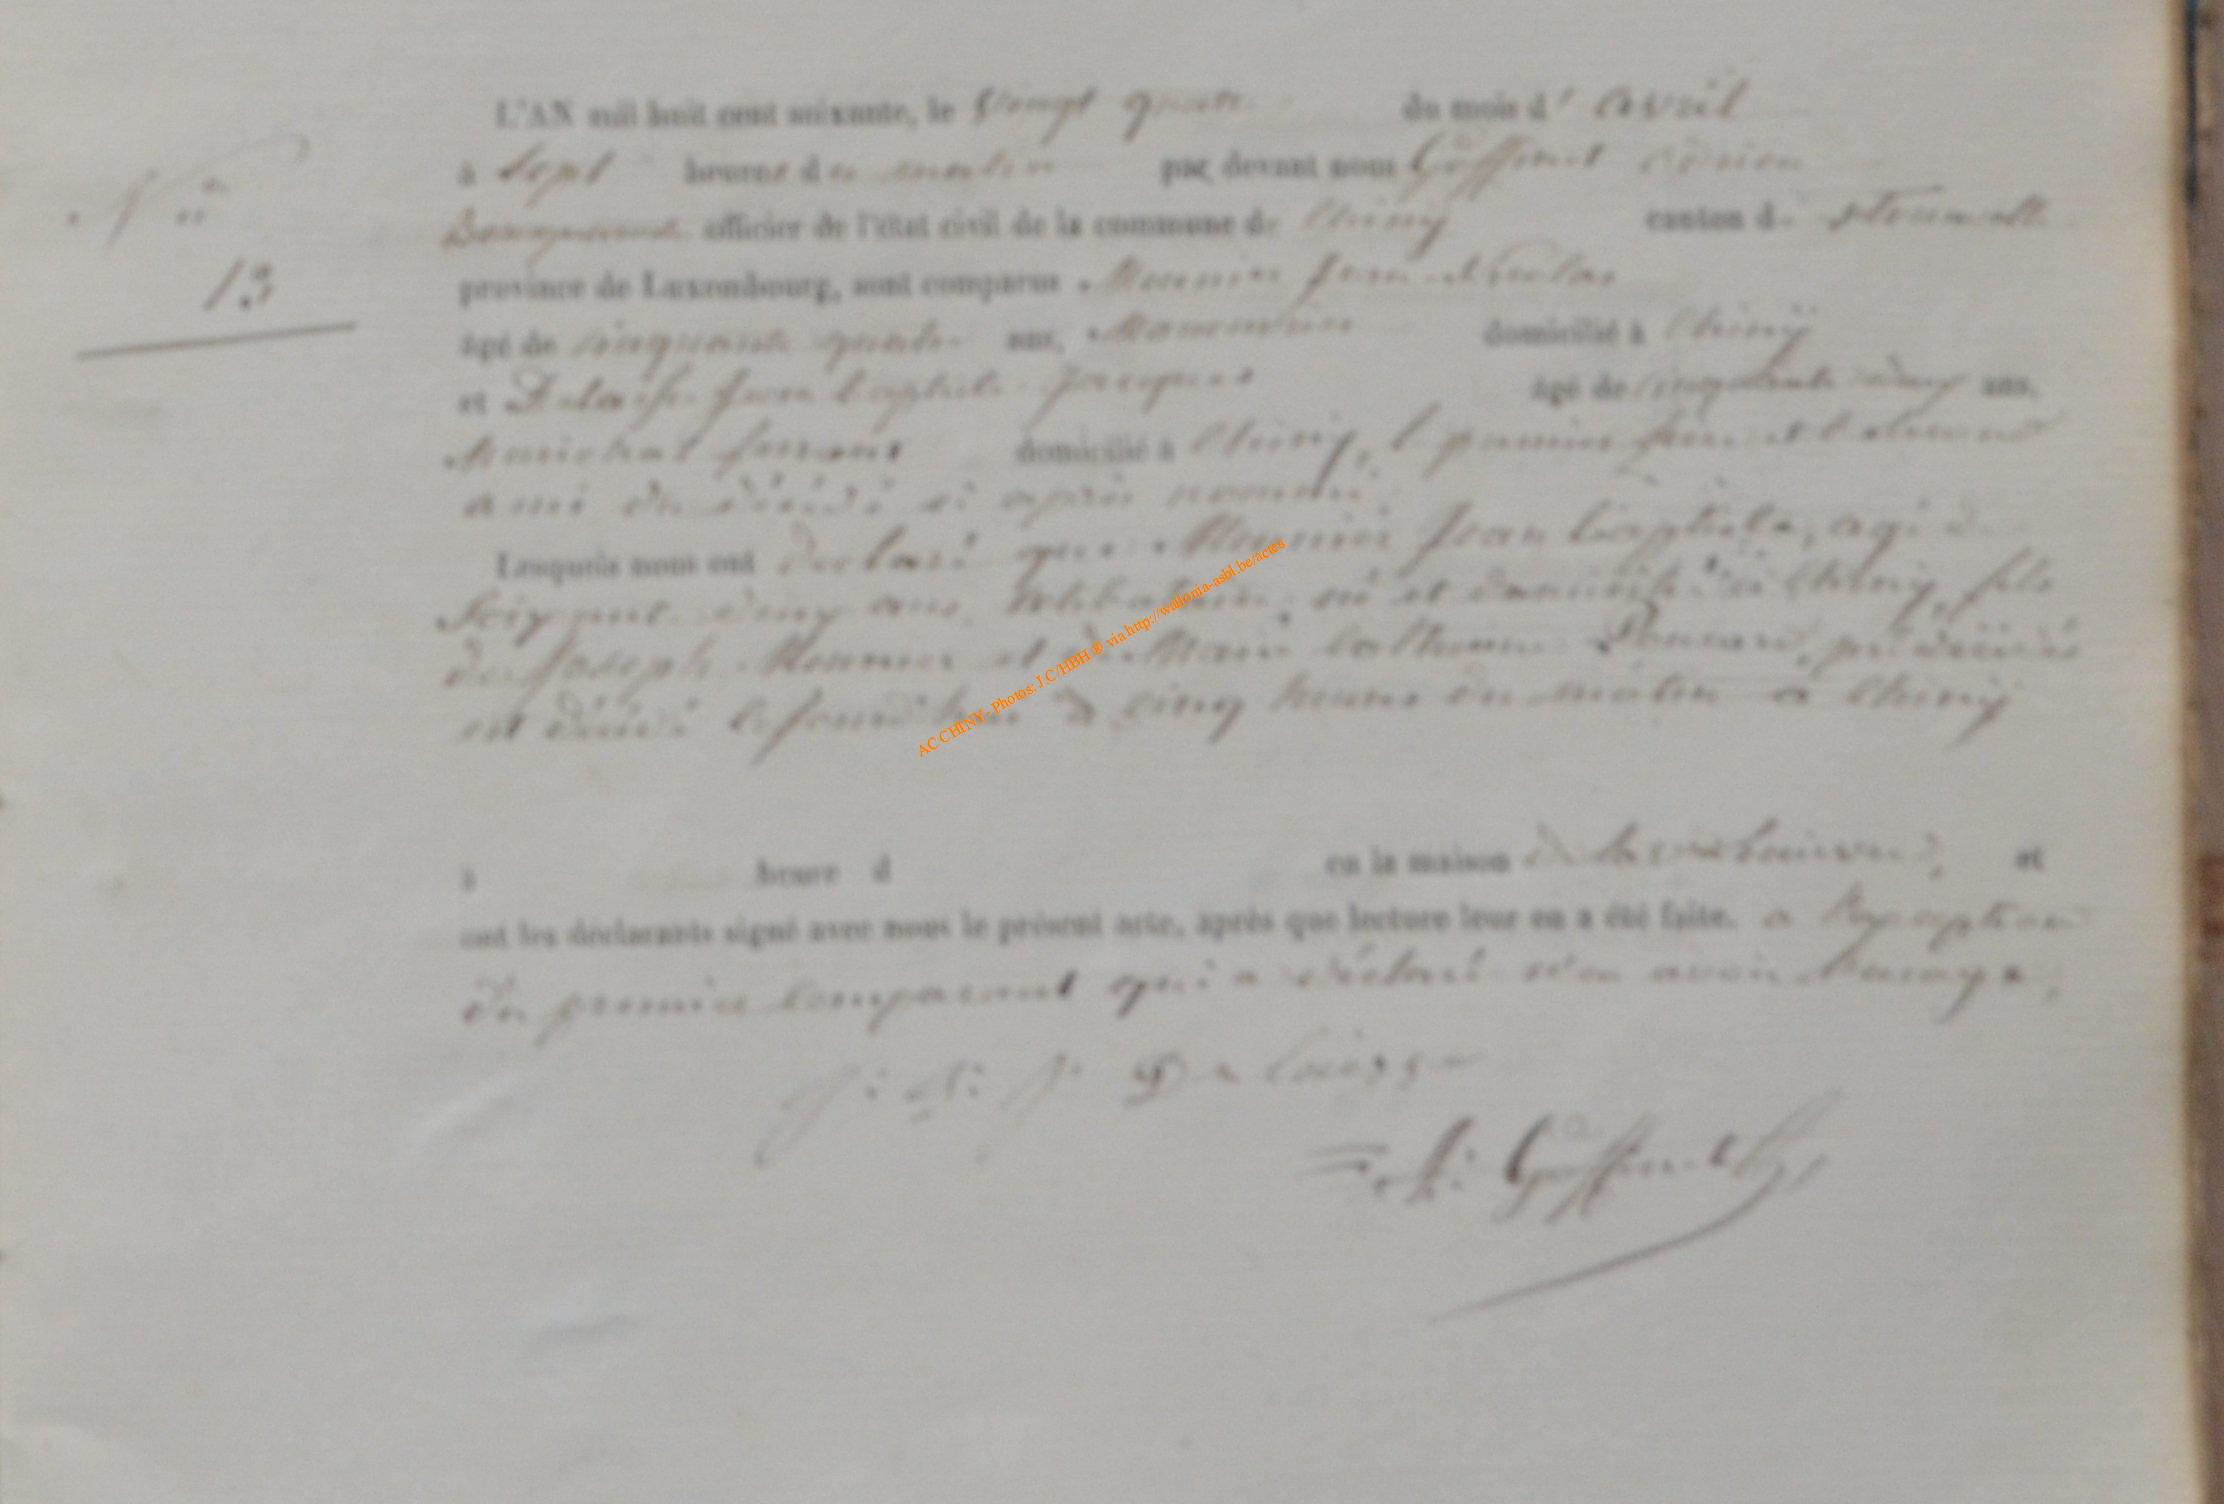 L'AN mil huit cent soixante, le Vingt quatre du mois d' avril
à Sept heures du matin par devant nous Goffinet
officier de l'état civil de la commune de Chiny canton de
N° province de Luxembourg, sont comparus Meunier Jean Nicolas
13 âgé de cinquante quatre ans, Manoeuvre domicilié à Chiny
et Delaisse Jean baptiste Jacques âgé de cinquante deux ans,
Marichal ferrant domicilié à Chiny, le premier frere et le second
ami du décédé ci après nommé
Lesquels nous ont declaré que Meunier Jean baptiste, agé de
Soixante deux ans, Celibataire, né et domicilié à Chiny, fils
de Joseph Meunier et de Marie Catherine
est décédé cejourd'hui à cinq heures du matin à Chiny
AC CHINY- Photos: J.C/HBH ® via http://wallonia-asbl.be/actes
à heure d en la maison de et
ont les déclarants signé avec nous le présent acte, après que lecture leur en a été faite. a l'exception
du premier comparant qui a déclaré n'en avoir l'usage,
J: B: J. Delaisse
Goffinet